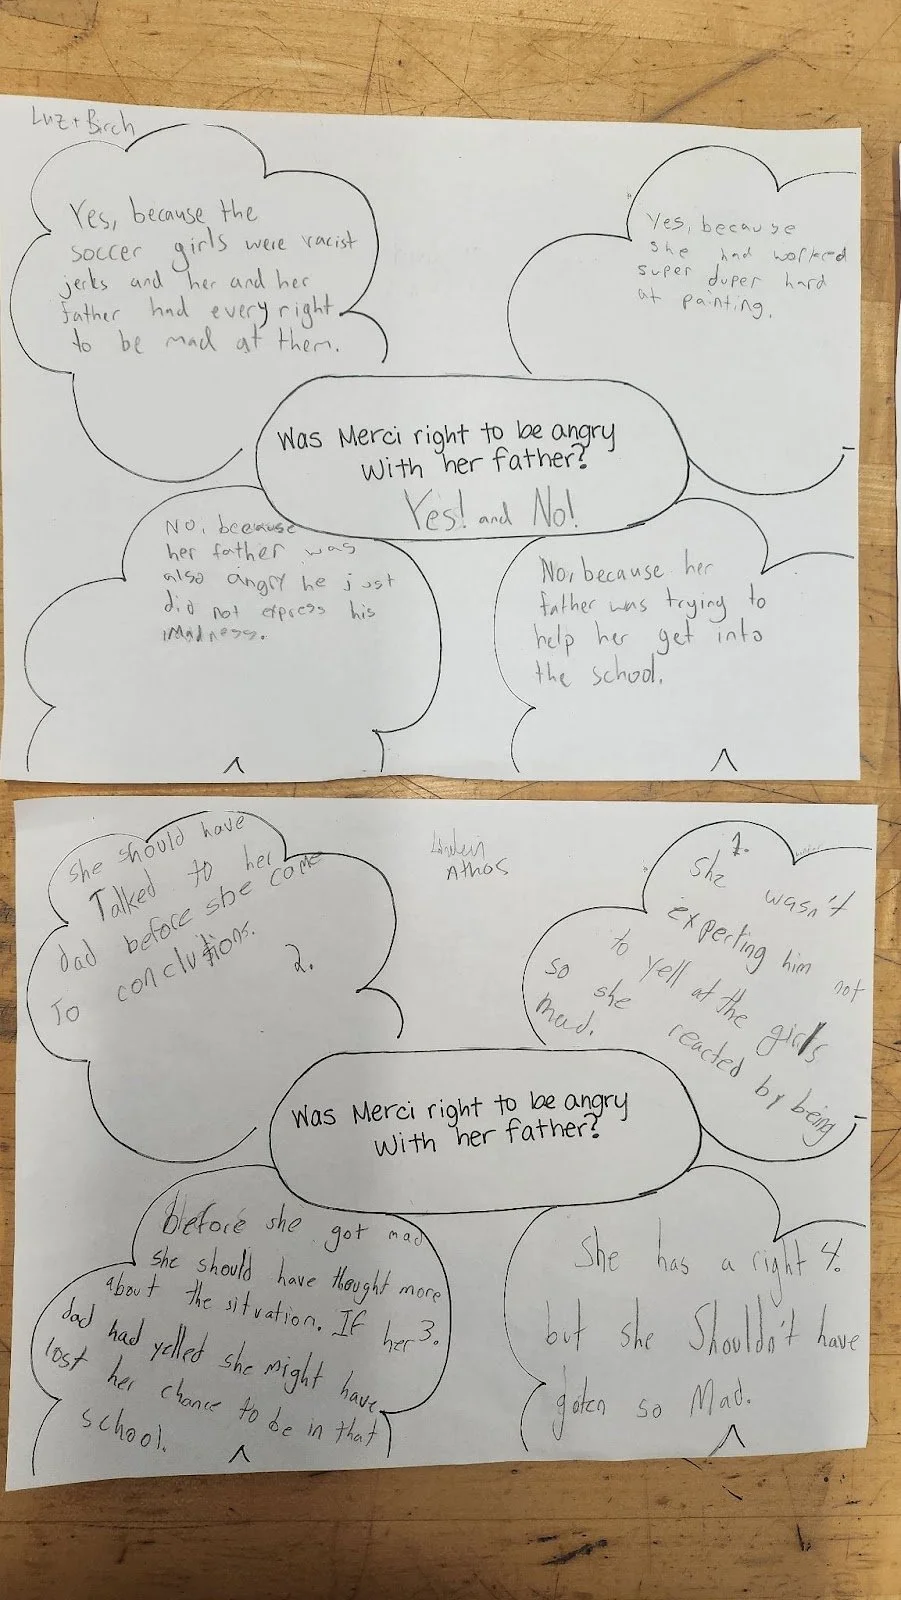 Luz + Birch
Yes, because the
soccer girls were racist
jerks and her and her
father had every right
to be mad at them.
Yes, because
she had worked
super duper hard
at painting.
Was Merci right to be angry
with her father?
Yes! and No!
No, beecause
her father was
also angry he just
did not express his
madness.
No, because her
father was trying to
help her get into
the school.
Athos
She should have
Talked to her
dad before she came
To conclutions.
2.
1.
She wasn't
experting him not
to yell at the girls
so she reacted by being
mad.
Was Merci right to be angry
with her father?
Before she got mad
she should have thought more
about the situation. If her
dad had yelled she might have
lost her chance to be in that
school.
3.
She has a right 4.
but she Shouldn't have
goten so Mad.